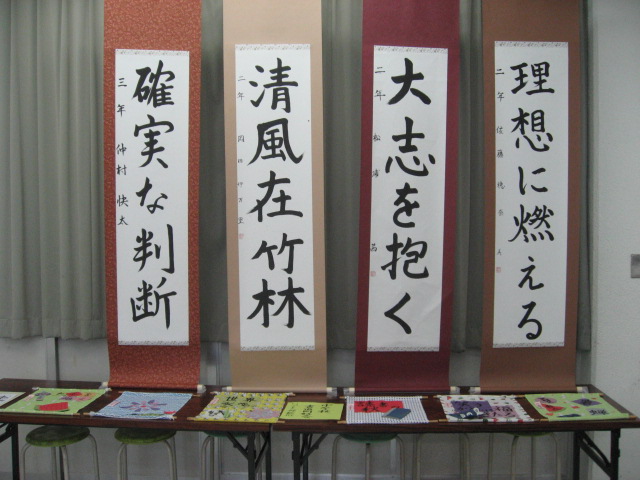 理想に燃える
二年
大志を抱く
二年
清風在竹林
二年
確実な判断
三年 仲村 快太
世界